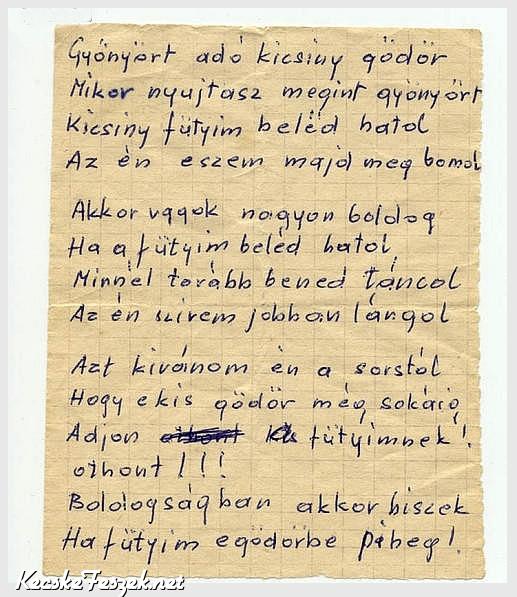 Gyönyört adó kicsiny gödör
Mikor nyujtasz megint gyönyört
Kicsiny fütyim beléd hatol
Az én eszem majd meg bomol
Akkor vagok nagyon boldog
Ha a fütyim beléd hatol
Minnél tovább bened táncol
Az én szivem jobban lángol
Azt kivánom én a sorstól
Hogy ekis gödör még sokáig
Adjon kis fütyimnek!
othont!!!
Bolologságban akkor hiszek
Ha fütyim egödörbe piheg!
KecskeFeszek.net